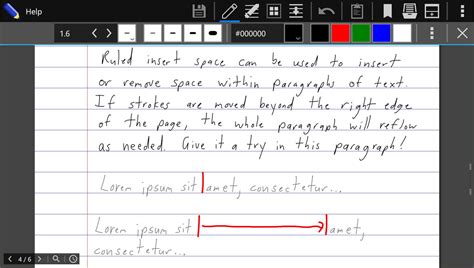 Help
1.6
#000000
Ruled insert space can be used to insert
or remove space within paragraphs of text.
If strokes are moved beyond the right edge
of the page, the whole paragraph will reflow
as needed. Give it a try in this paragraph!
Lorem ipsum sit amet, consectetur...
Lorem ipsum sit amet,
consectetur...
4/6